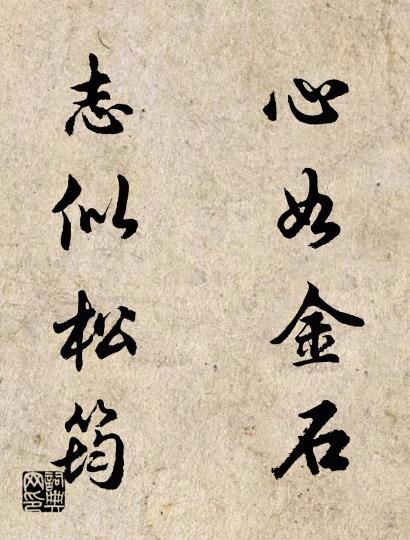 心如金石
志似松筠
詞典网印